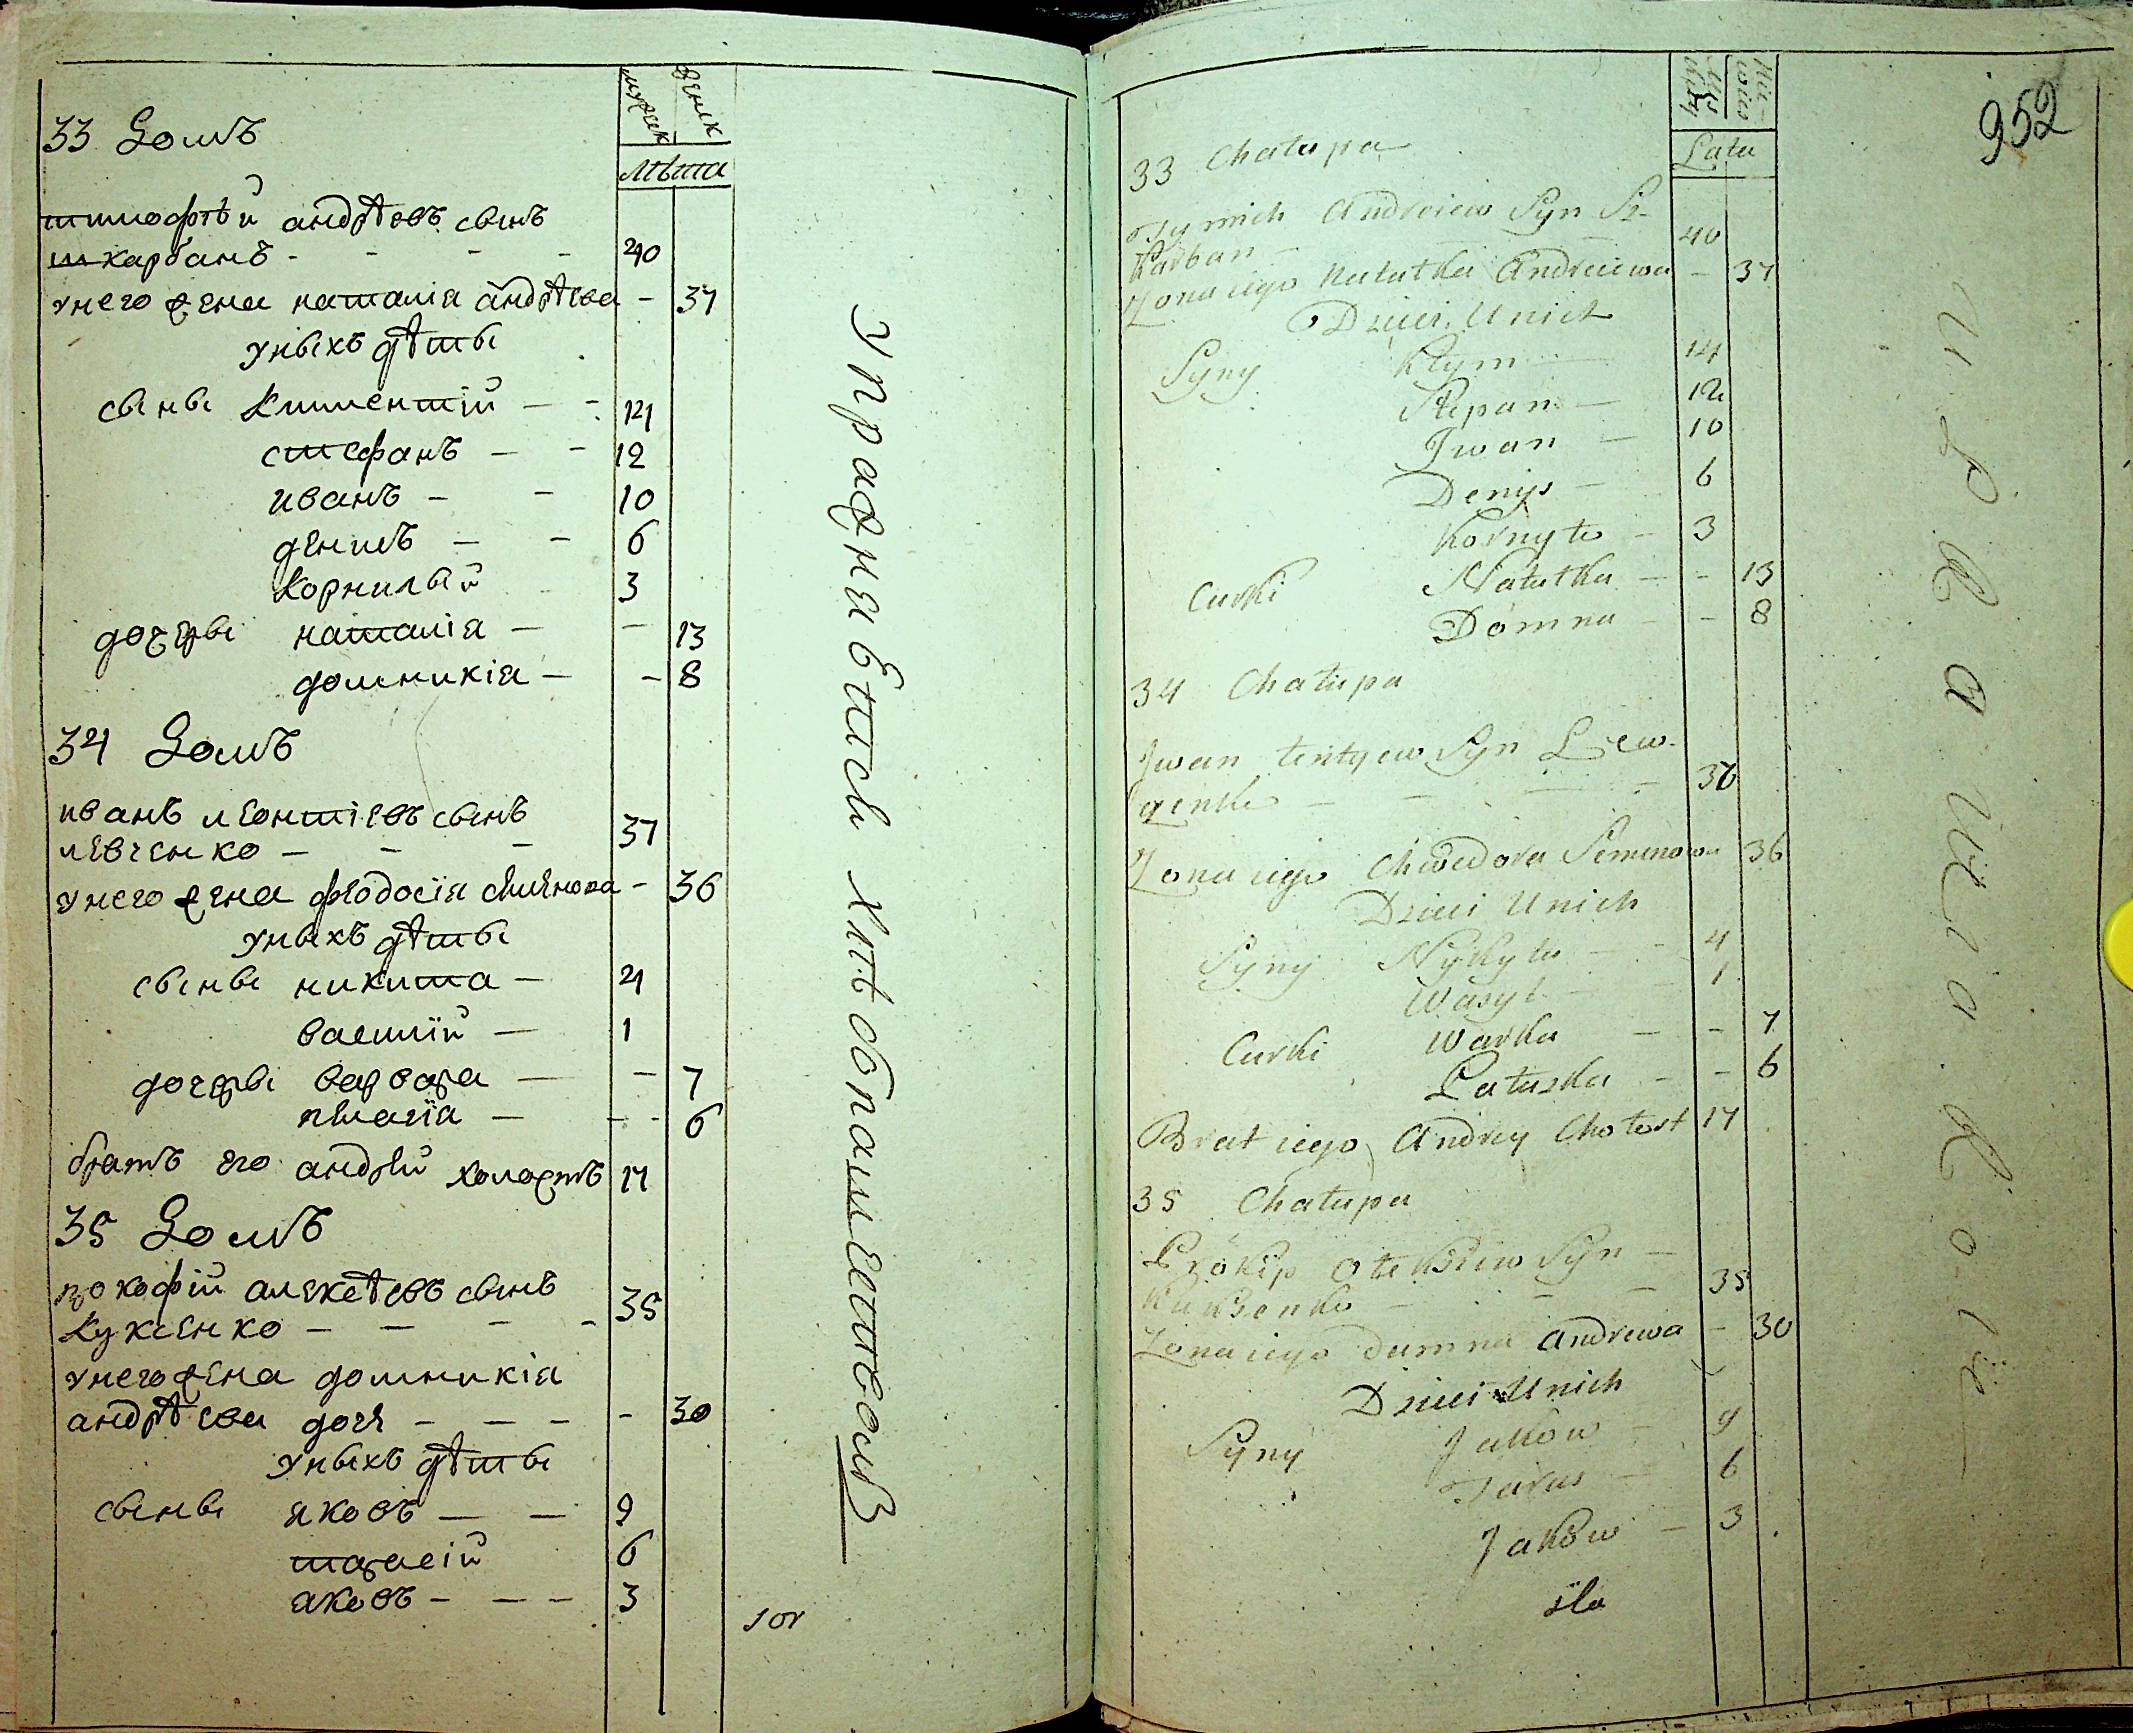 мужск женск
лѣта
33 Домъ
тимофѣй андрѣевъ сынъ
шкарбанъ - - - - 40
унего жена наталія андрѣева - 37
уныхъ дѣты
сыны климентій - - 14
стефанъ - - 12
иванъ - - 10
денисъ - - 6
корнилый 3
дочеры наталія - - 13
домникія - - 8
34 Домъ
иванъ леонтіевъ сынъ
левченко - - - 37
унего жена феодосія семенова - 36
уныхъ дѣты
сыны никита - 4
василій - 1
дочеры варвара - - 7
пелагія - - - 6
братъ его андрей холостъ 17
35 Домъ
прокофій алексѣевъ сынъ
куксенко - - - - 35
унего жена домникія
андрѣева дочь - - - - 30
уныхъ дѣты
сыны яковъ - - 9
тарасій 6
яковъ - - - 3
952
Lata
33 Chałupa
Tymich Andreiew Syn Sz-
karban - 40
Żona iego Natałka Andreiewa - 37
Dzieci Unich
Syny Kłym - 14
Stepan - 12
Iwan - 10
Denys - 6
Kornyło - 3
Curki Natałka - - 13
Domna - - 8
34 Chałupa
Iwan Syn Lew-
czenko - - - - 37
Żona iego Chwedora Semenowa 36
Dzieci Unich
Syny Nykyta - - 4
Wasyl - - 1
Curki Warka - - 7
Pałaszka - - 6
Brat iego Andrey Chołost 17
35 Chałupa
Prokip Olexiiew Syn -
Kuksenko - - - 35
Żona iego Dumna Andrewa - 30
Dzieci Unich
Syny Jakow - 9
Taras - 6
Jaków - 3